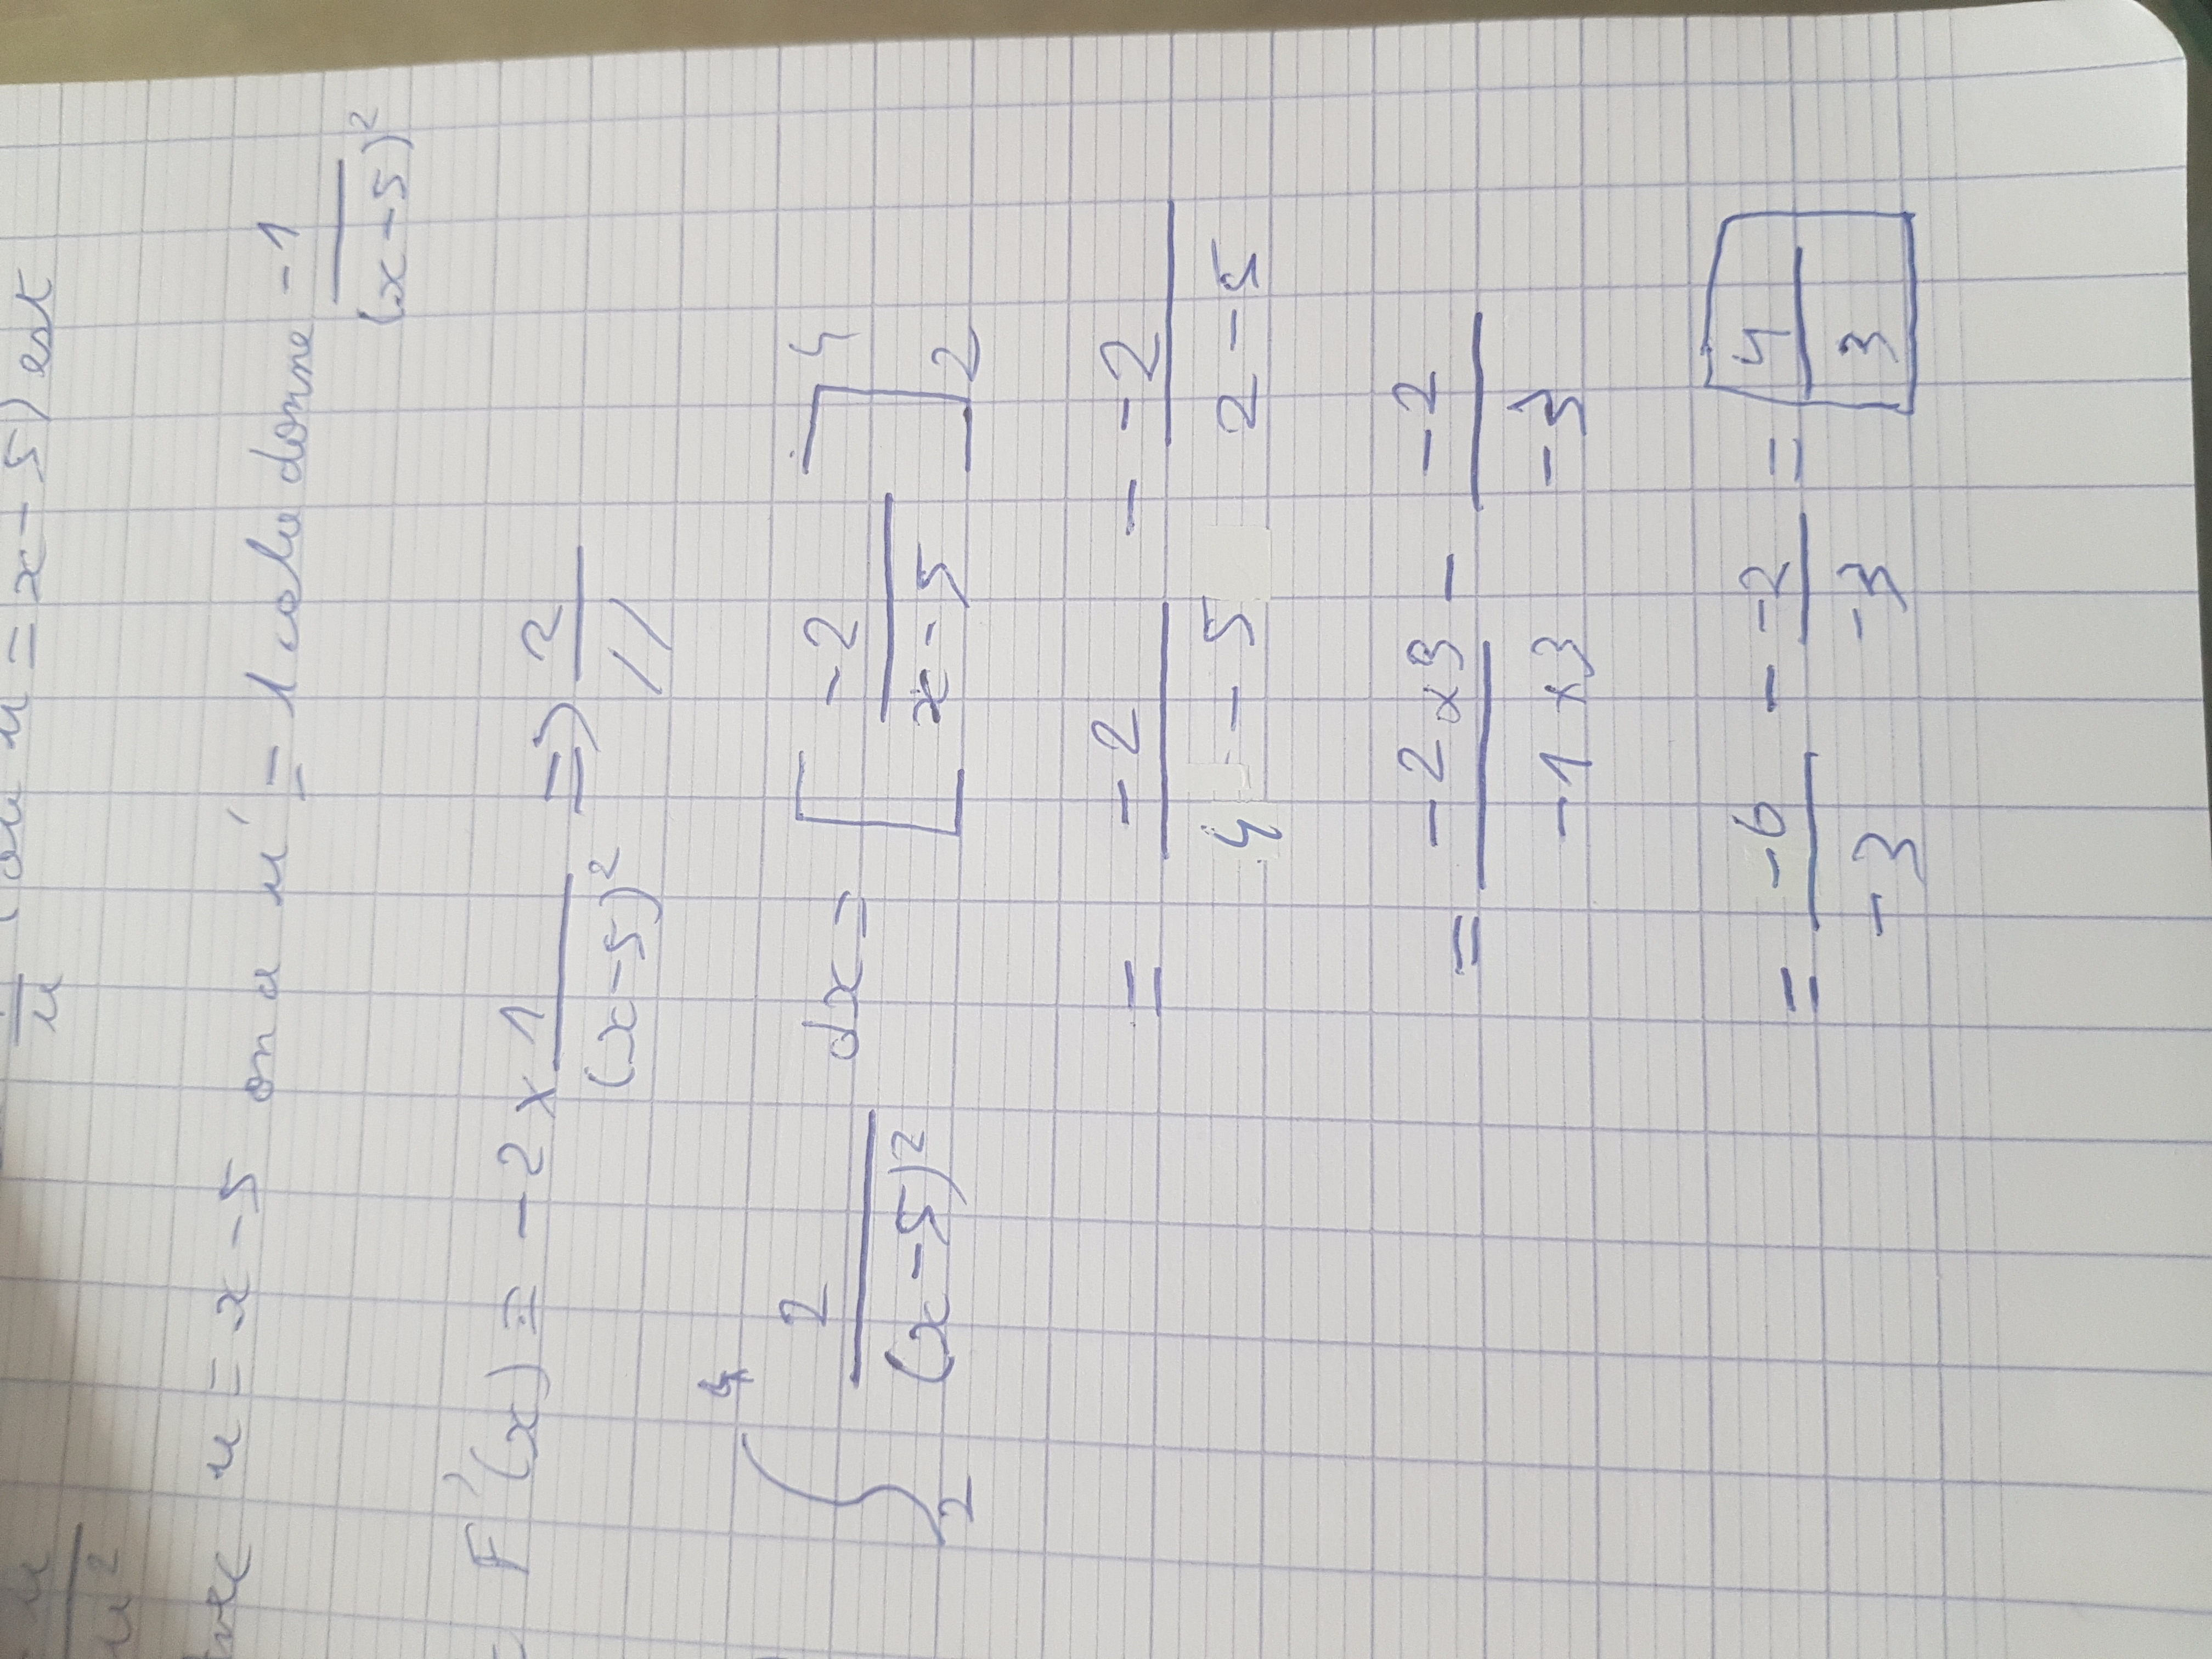 u (où u = x - 5) est
- u' / u²
avec u = x - 5 on a u' = 1 cela donne -1 / (x - 5)²
F'(x) = -2 × 1 / (x - 5)² => 2 / //
∫₂⁴ 2 / (x - 5)² dx = [ -2 / x - 5 ]₂⁴
= -2 / 4 - 5 - -2 / 2 - 5
= -2 × 3 / -1 × 3 - -2 / -3
= -6 / -3 - -2 / -3 = 4 / 3